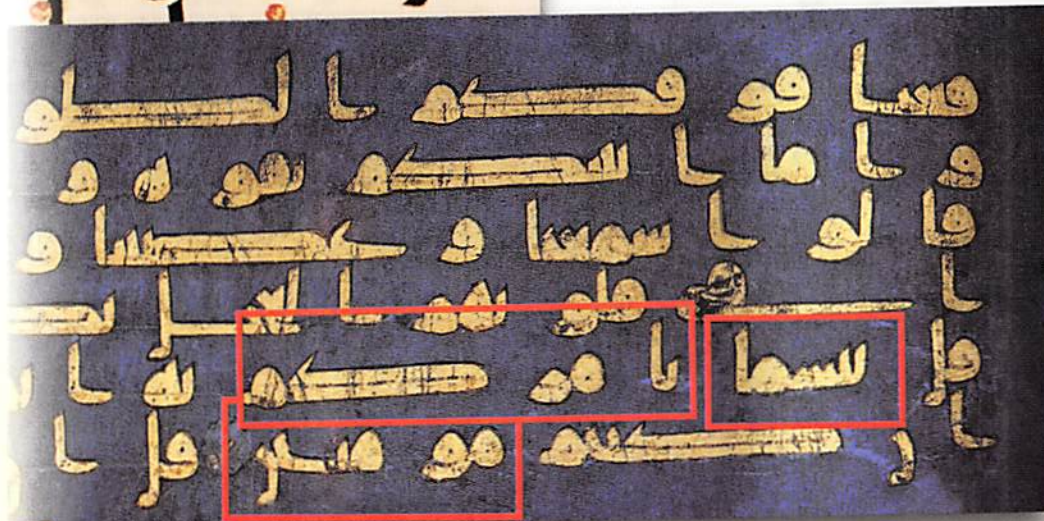 فعنا فو قكم ا لطو
و ا ما ا تينكم بقو ه و
قا لو ا سمعنا و عصينا و
ا في قلو بهم ا لعجل
قل بئسما يا مر كم به ا
ا ن كنتم مو منين قل ا